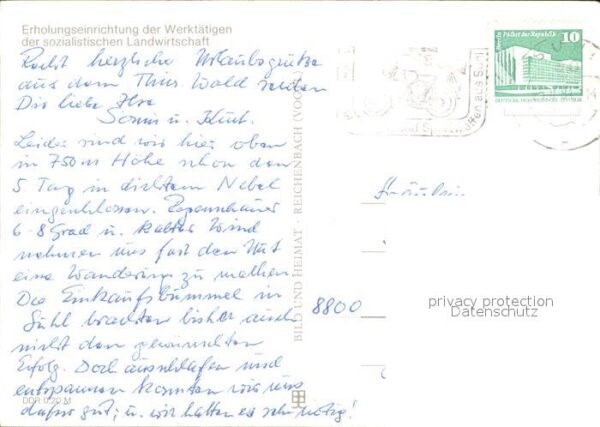 Erholungseinrichtung der Werktätigen
der sozialistischen Landwirtschaft
Recht herzliche Urlaubsgrüße
aus dem Thür. Wald senden
Dir liebe
u. Kurt.
Leider sind wir hier oben
in 750 m Höhe schon den
5 Tag in dichtem Nebel
eingeschlossen. Regenschauer
6-8 Grad u. kalter Wind
nehmen uns fast den Mut
eine Wanderung zu machen.
Die Einkaufsbummel in
Suhl brachten bisher auch
nicht den gewünschten
Erfolg. Doch ausschlafen und
entspannen konnten wir uns
dafür gut; u. wir hatten es sehr nötig!
DDR 0,20 M
BILD UND HEIMAT · REICHENBACH (VOGTL)
Berlin, Palast der Republik
10
DEUTSCHE DEMOKRATISCHE REPUBLIK
waffen aus Suhl
Fräulein
8800
privacy protection
Datenschutz